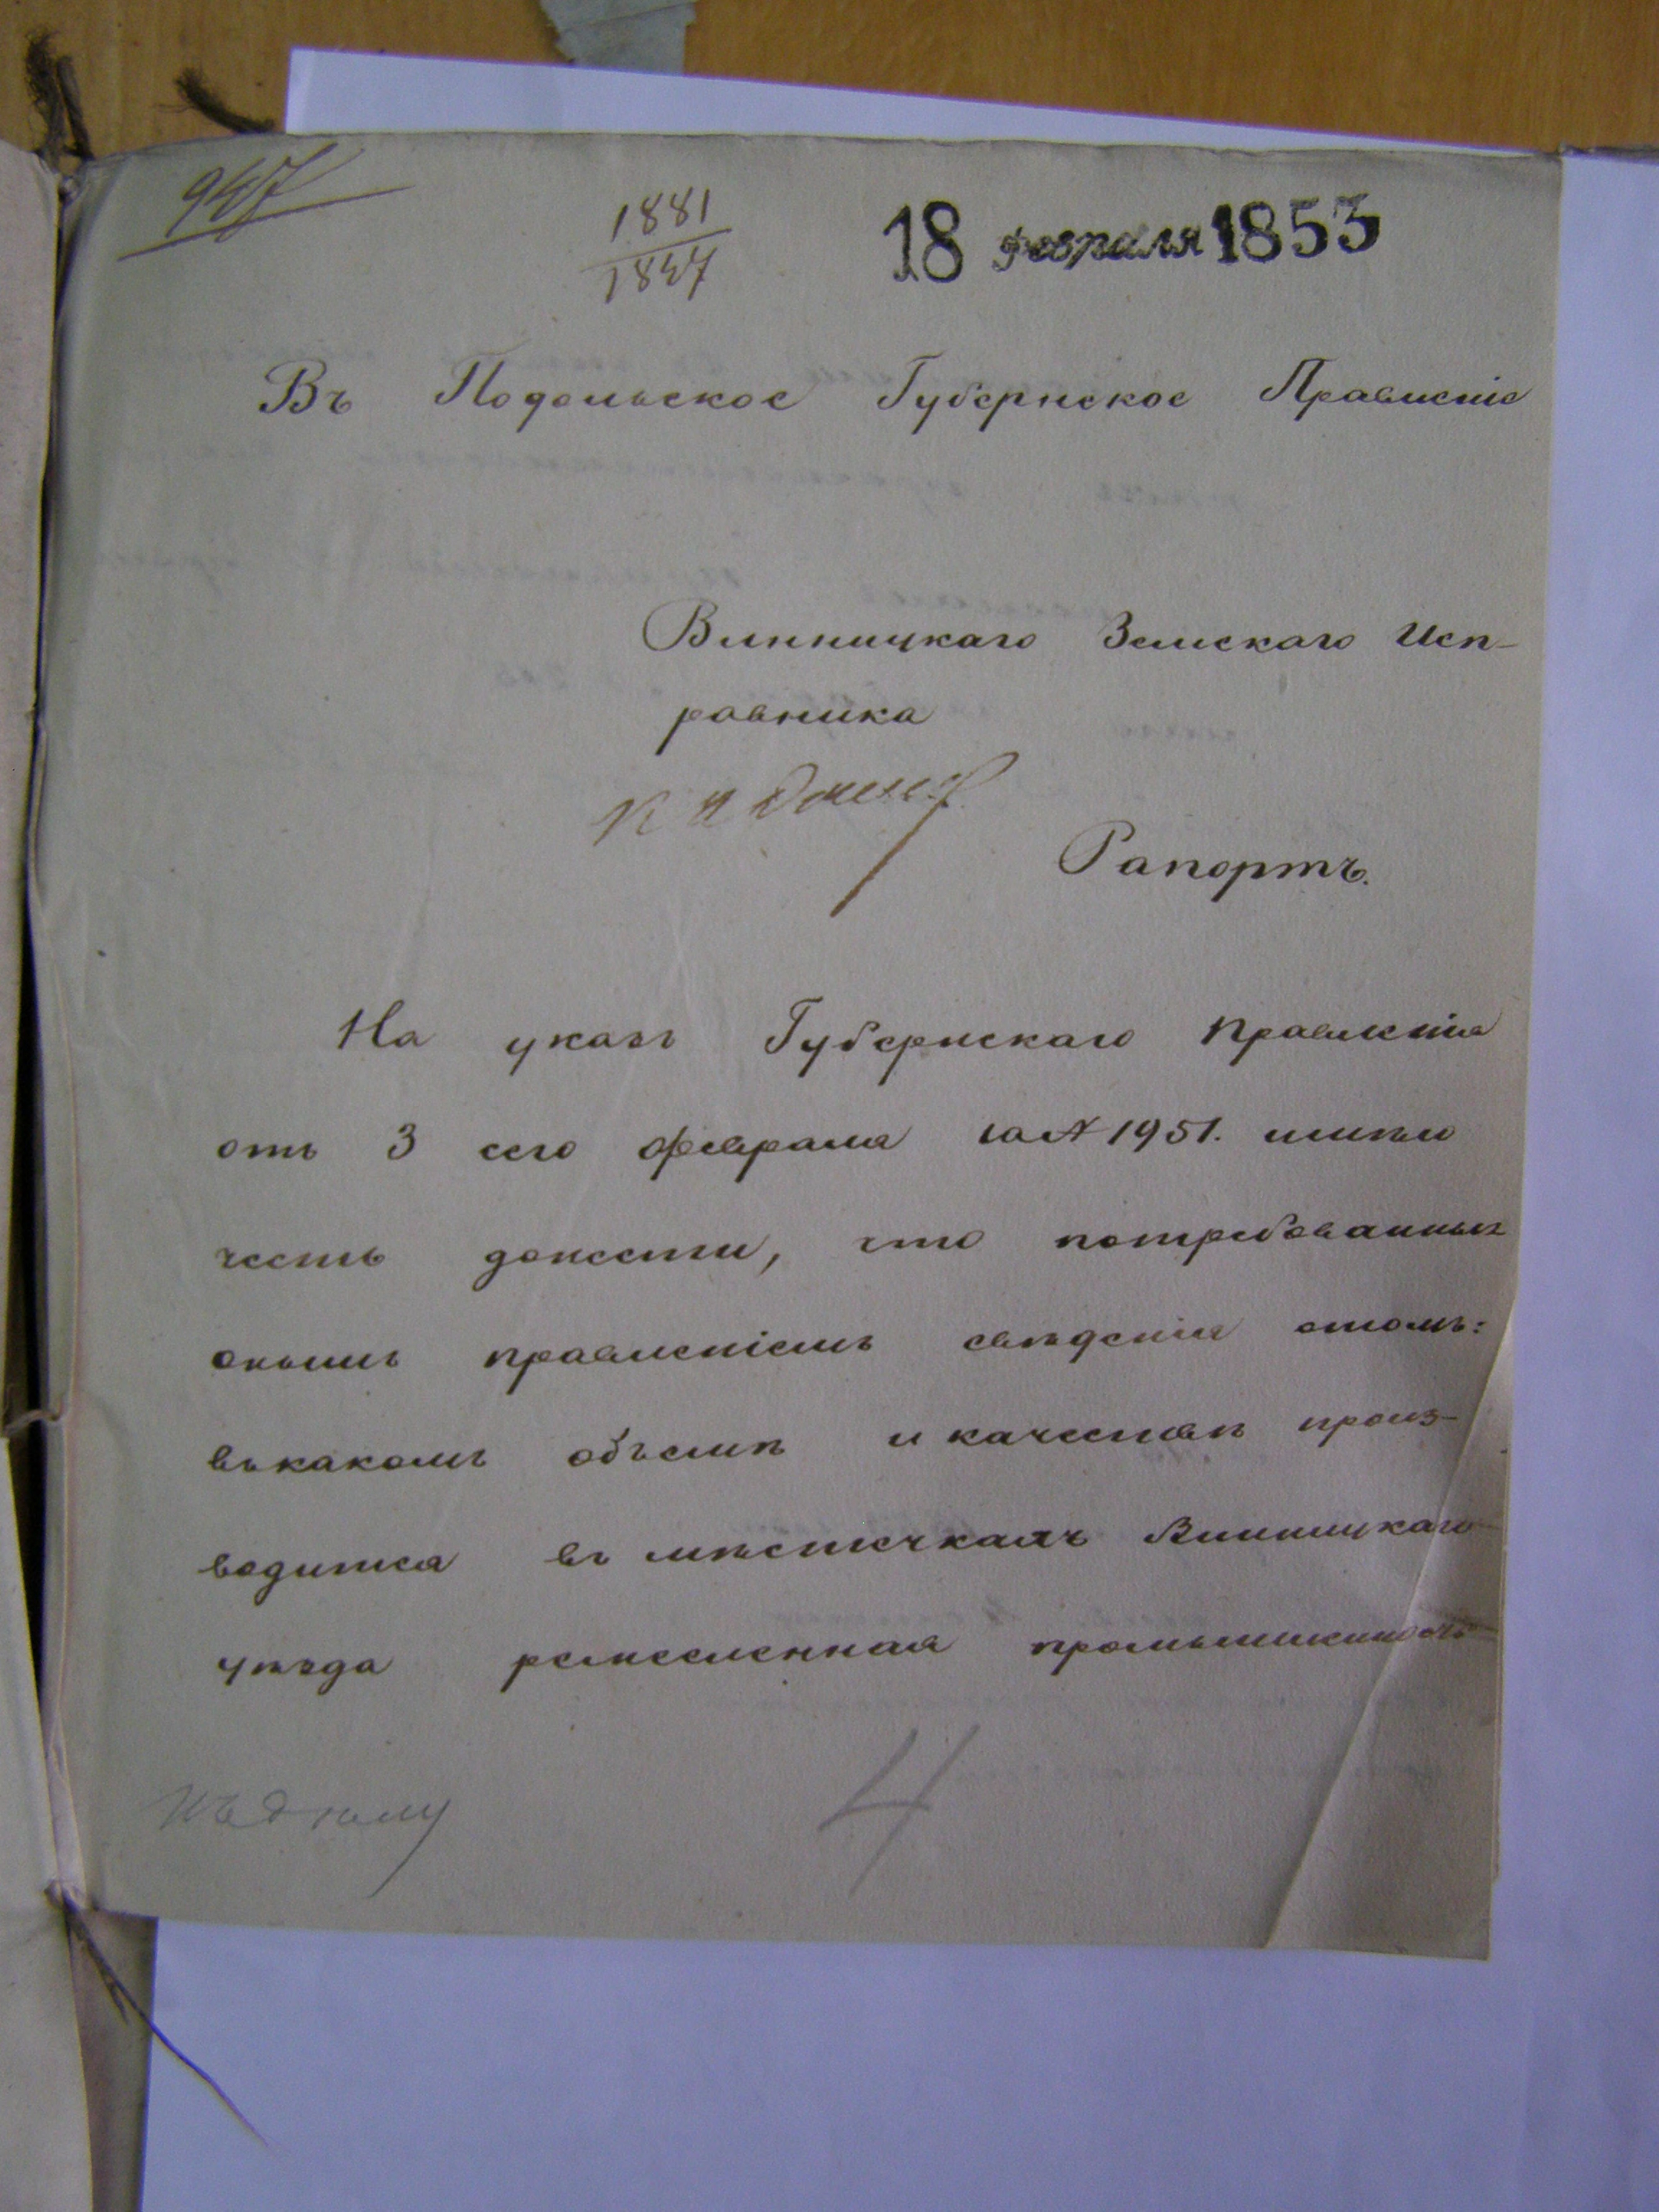 947
1881
1847
18 февраля 1853
Въ Подольское Губернское Правленіе
Винницкаго Земскаго Исп-
равника
Рапортъ.
На указъ Губернскаго Правленія
отъ 3 сего февраля за № 1951. имѣю
честь донести, что потребованныя
онымъ правленіемъ свѣденія отомъ:
въкакомъ объемѣ и качествѣ произ-
водится въ мѣстечкахъ Винницкаго
уѣзда ремесленная промышленность
Къ дѣлу
4